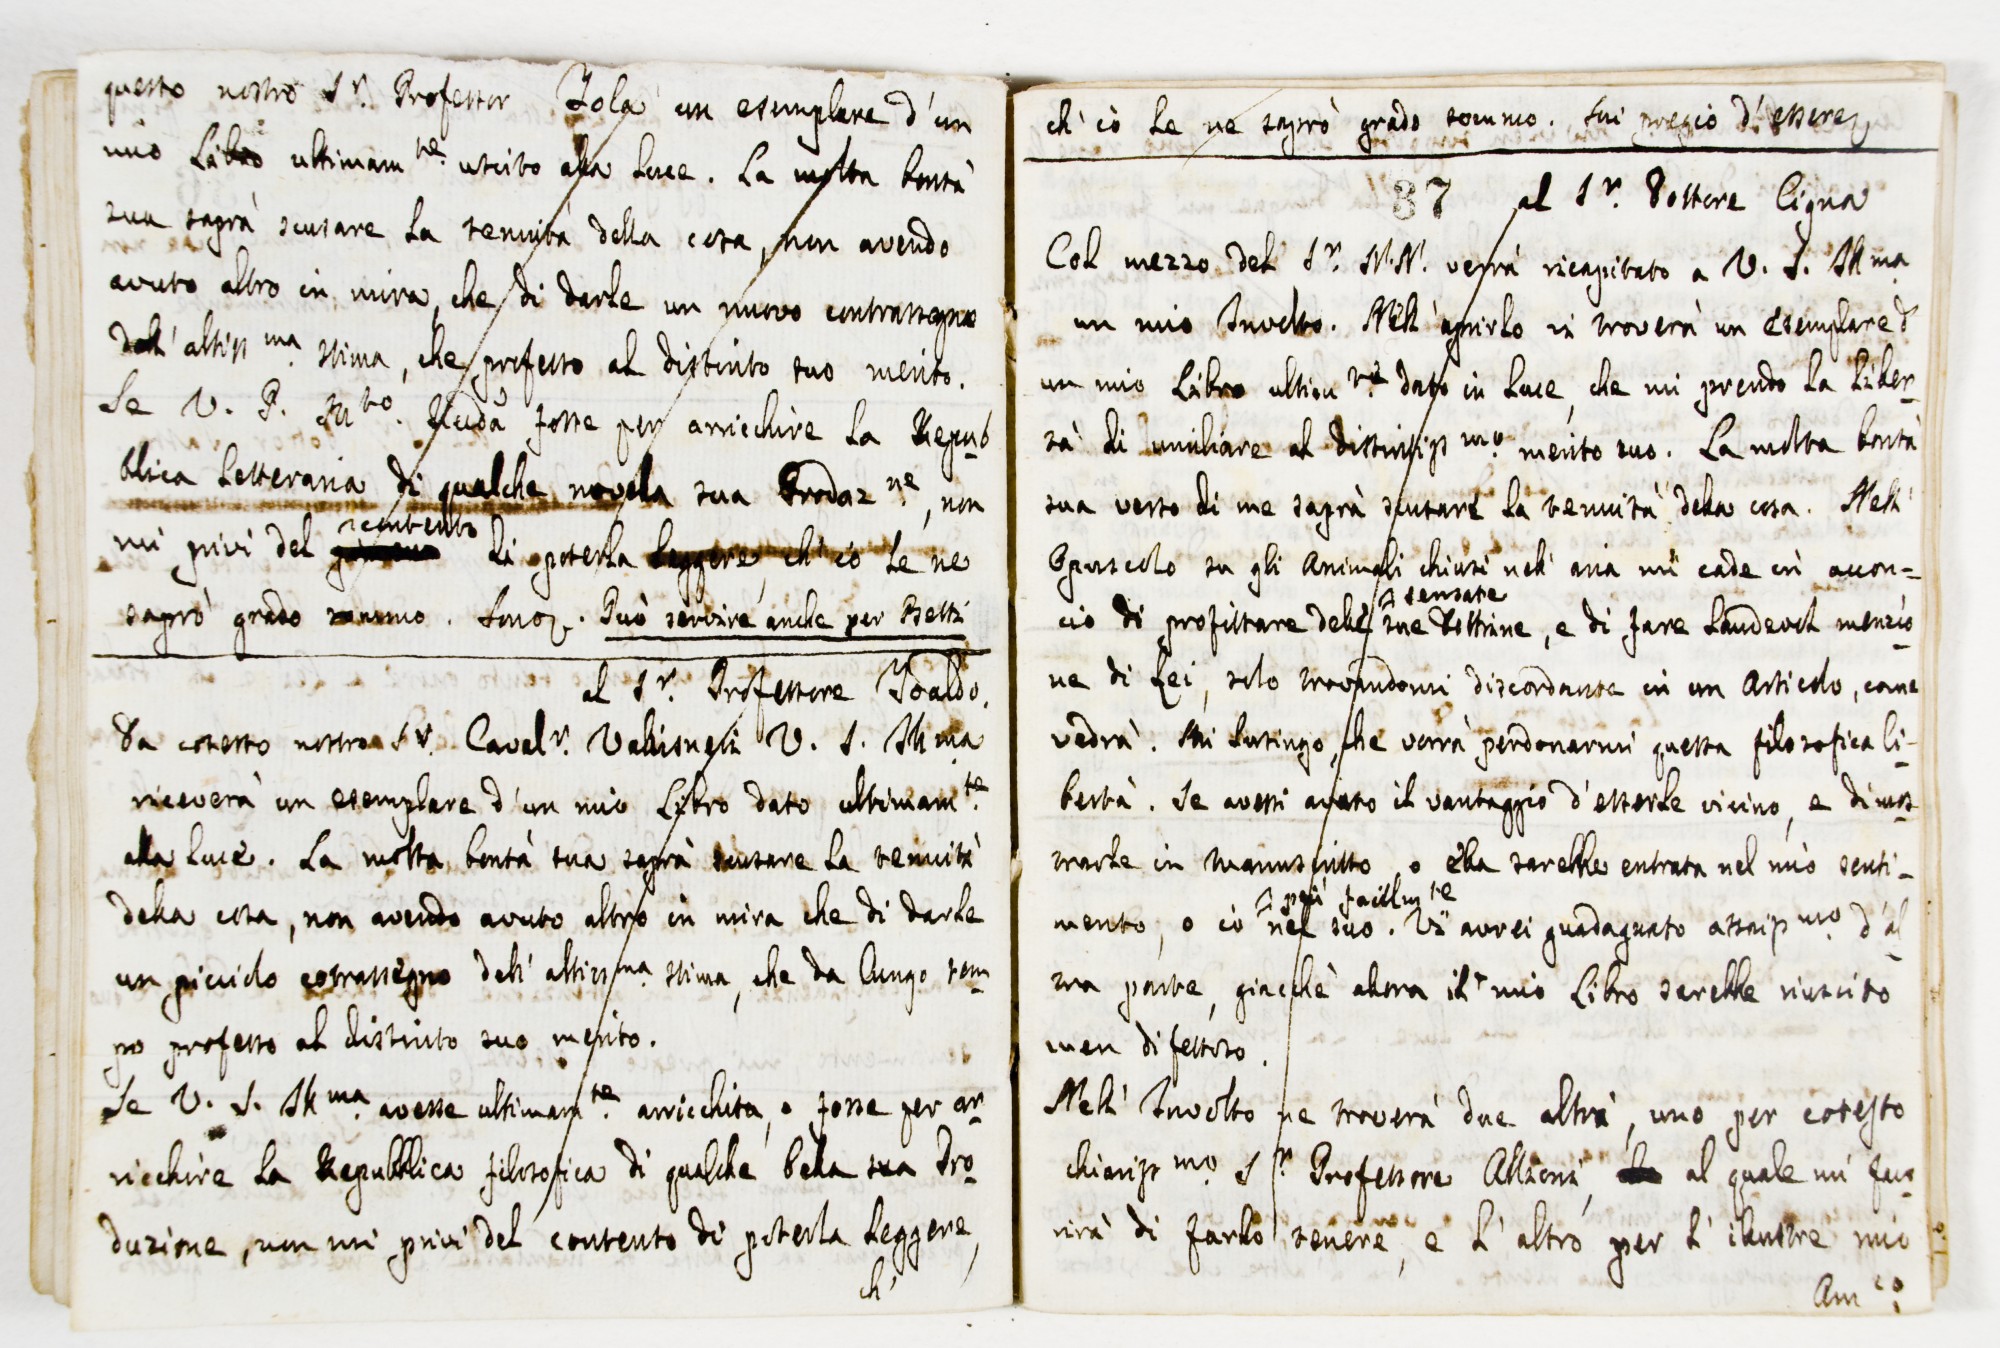 questo nostro Sr. Professor Zola un esemplare d'un
mio Libro ultimamte. uscito alla Luce. La molta bontà
sua saprà scusare la tenuità della cosa, non avendo
avuto altro in mira, che di darle un nuovo contrassegno
dell'altissma. stima, che professo al distinto suo merito.
Se V. P. fosse per arricchire la Repub
blica Letteraria di qualche novella sua Prodazne, non
mi privi del contento di poterla Leggere, ch'io Le ne
saprò grado sommo. Sono. Può servire anche per Betti
al Sr. Professore Toaldo.
Da cotesto nostro Sr. Cavalr. Vallisneri V. S. Illma
riceverà un esemplare d'un mio Libro dato ultimamte.
alla Luce. La molta bontà sua saprà scusare la tenuità
della cosa, non avendo avuto altro in mira che di darle
un picciolo cotrassegno dell'altissma. stima, che da lungo tem
po professo al distinto suo merito.
Se V. S. Illma. avesse ultimamte. arricchita, o fosse per ar
ricchire la Repubblica filosofica di qualche bella sua Pro
duzione, non mi privi del contento di poterla Leggere,
ch'
ch'io Le ne saprò grado sommo. Sui pregio d'essere
37 al Sr. Dottore Cigna
Col mezzo del Sr. N.N. verrà ricapitato a V. S. Illma.
un mio Involto. Nell'aprirlo vi troverà un esemplare d'
un mio Libro ultimte. dato in Luce, che mi prendo la Liber-
tà di umiliare al distintissmo. merito suo. La molta bontà
sua verso di me saprà scusare la tenuità della cosa. Nell'
Opuscolo su gli Animali chiusi nell'aria mi cade in accon-
cio di profittare delle sensate sue Dottrine, e di fare Laudevol menzio
ne di Lei, solo trovandomi discordante in un Articolo, come
vedrà. Mi Lusingo, che vorrà perdonarmi questa filosofica li-
bertà. Se avessi avuto il vantaggio d'esserle vicino, e dimos
trarle in Manuscritto, o ella sarebbe entrata nel mio senti-
mento, o io più facilmte nel suo. Vi avrei guadagnato assaissmo. d'al
tra parte, giacchè allora il mio Libro sarebbe riuscito
men difettoso.
Nell'Involto ne troverà due altri, uno per cotesto
chiarissmo. Sr. Professore Allioni, al quale mi favo
rirà di farlo tenere, e l'altro per l'illustre mio
Amco.